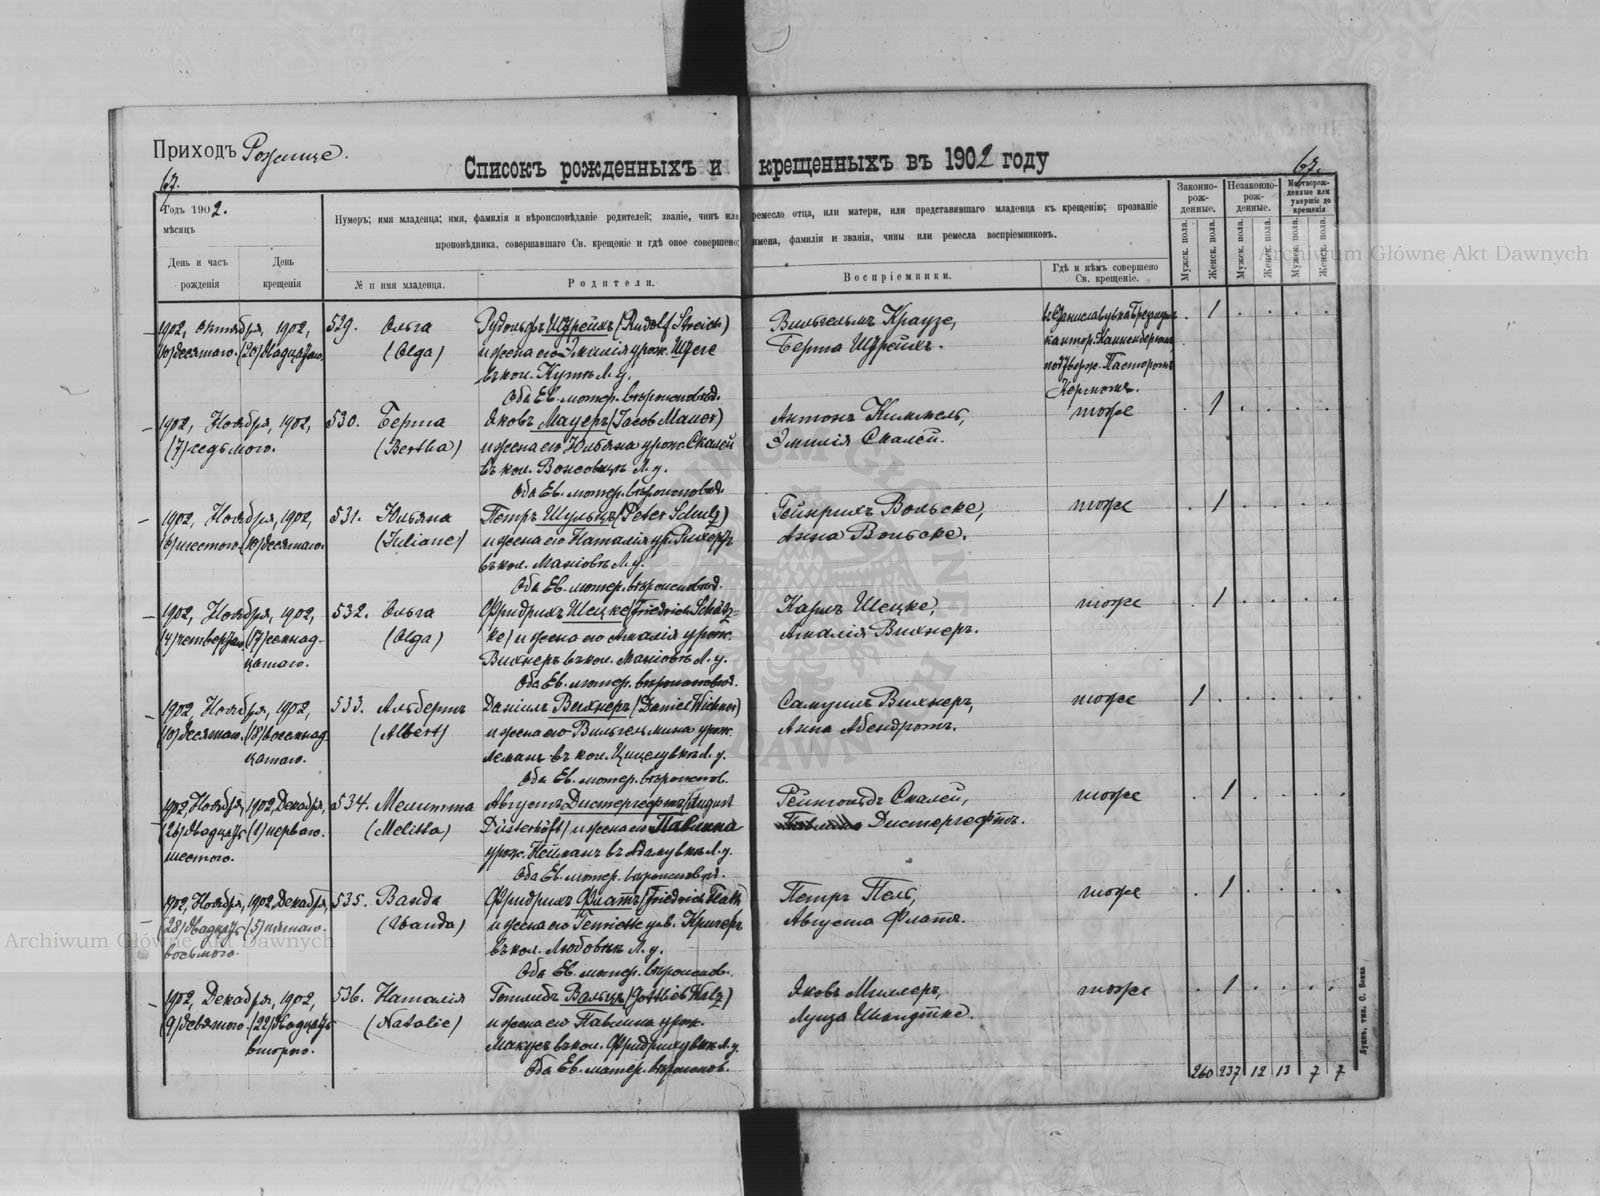 Приходъ Рожище.
Списокъ рожденныхъ и крещенныхъ въ 1902 году
67.
67.
Годъ 1902.
мѣсяцъ
День и часъ рожденія
День крещенія
Нумеръ; имя младенца; имя, фамилія и вѣроисповѣданіе родителей; званіе, чинъ или ремесло отца, или матери, или представившаго младенца къ крещенію; прозваніе
проповѣдника, совершавшаго Св. крещеніе и гдѣ оное совершено; имена, фамиліи и званія, чины или ремесла воспріемниковъ.
№ и имя младенца.
Родители.
Воспріемники.
Гдѣ и кѣмъ совершено Св. крещеніе.
Законно-рож-денные.
Незаконно-рож-денные.
Мертворож-денные или умершіе до крещенія
Мужск. пола.
Женск. пола.
Мужск. пола.
Женск. пола.
Мужск. пола.
Женск. пола.
1902, Октября, 1902,
(10) десятаго. (20) двадцатаго.
529. Ольга
(Olga)
Рудольфъ Штрейхъ (Rudolf Streich)
и жена его Эмилія урож.
въ кол. Л. у.
Оба Ев. лютер. вѣроисповѣд.
Вильгельмъ Краузе,
Берта Штрейхъ.
кантор.
подтверж. Пасторомъ
1
1902, Ноября, 1902,
(7) седьмого.
530. Берта
(Bertha)
Яковъ Мауеръ (Jacob Mauer)
и жена его Юльяна урож. Скалей
въ кол. Л. у.
Оба Ев. лютер. вѣроисповѣд.
Антонъ Киммель,
Эмилія Скалей.
тоже
1
1902, Ноября, 1902,
(6) шестого. (10) десятаго.
531. Юльяна
(Juliane)
Петръ Шульцъ (Peter Schulz)
и жена его Наталія ур.
въ кол. Маніовъ Л. у.
Оба Ев. лютер. вѣроисповѣд.
Гейнрихъ Вольске,
Анна Вольске.
тоже
1
1902, Ноября, 1902,
(4) четвертаго (17) семнад-
цатаго.
532. Ольга
(Olga)
Фридрихъ Шецке (Friedrich Schätz-
ke) и жена его Амалія урож.
Вихнеръ въ кол. Маніовъ Л. у.
Оба Ев. лютер. вѣроисповѣд.
Карлъ Шецке,
Амалія Вихнеръ.
тоже
1
1902, Ноября, 1902,
(10) десятаго. (18) восемнад-
цатаго.
533. Альбертъ
(Albert)
Даніилъ Вихнеръ (Daniel Wichner)
и жена его Вильгельмина урож.
въ кол. Л. у.
Оба Ев. лютер. вѣроиспов.
Самуилъ Вихнеръ,
Анна Абендротъ.
тоже
1
1902, Ноября, 1902, Декабря,
(26) двадцать (1) перваго.
шестого.
534. Мелитта
(Melitta)
Августъ Дистергефтъ (August
Düsterhöft) и жена его Павлина
урож. Нейманъ въ Адамувкѣ Л. у.
Оба Ев. лютер. вѣроисповѣд.
Рейнгольдъ Скалей,
Дистергефтъ.
тоже
1
1902, Ноября, 1902, Декабря,
(28) двадцать (5) пятаго.
восьмого.
535. Ванда
(Wanda)
Фридрихъ Флатъ (Friedrich Flath)
и жена его Кригеръ
въ кол. Любовкѣ Л. у.
Оба Ев. лютер. вѣроиспов.
Петръ Пель,
Августа Флатъ.
тоже
1
1902, Декабря, 1902,
(9) девятого. (22) двадцать
второго.
536. Наталія
(Natalie)
Готлибъ Вальцъ (Gottlieb Walz)
и жена его Павлина урож.
въ кол. Фридрихувкѣ Л. у.
Оба Ев. лютер. вѣроиспов.
Яковъ Миллеръ,
Луиза Шмидтке.
тоже
1
260 237 12 13 7 7
Archiwum Główne Akt Dawnych
Archiwum Główne Akt Dawnych